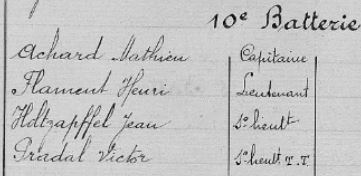 10e Batterie
Achard Mathieu Capitaine
Flament Henri Lieutenant
Holtzapffel Jean Ss lieutt
Pradal Victor Ss lieutt T.T.